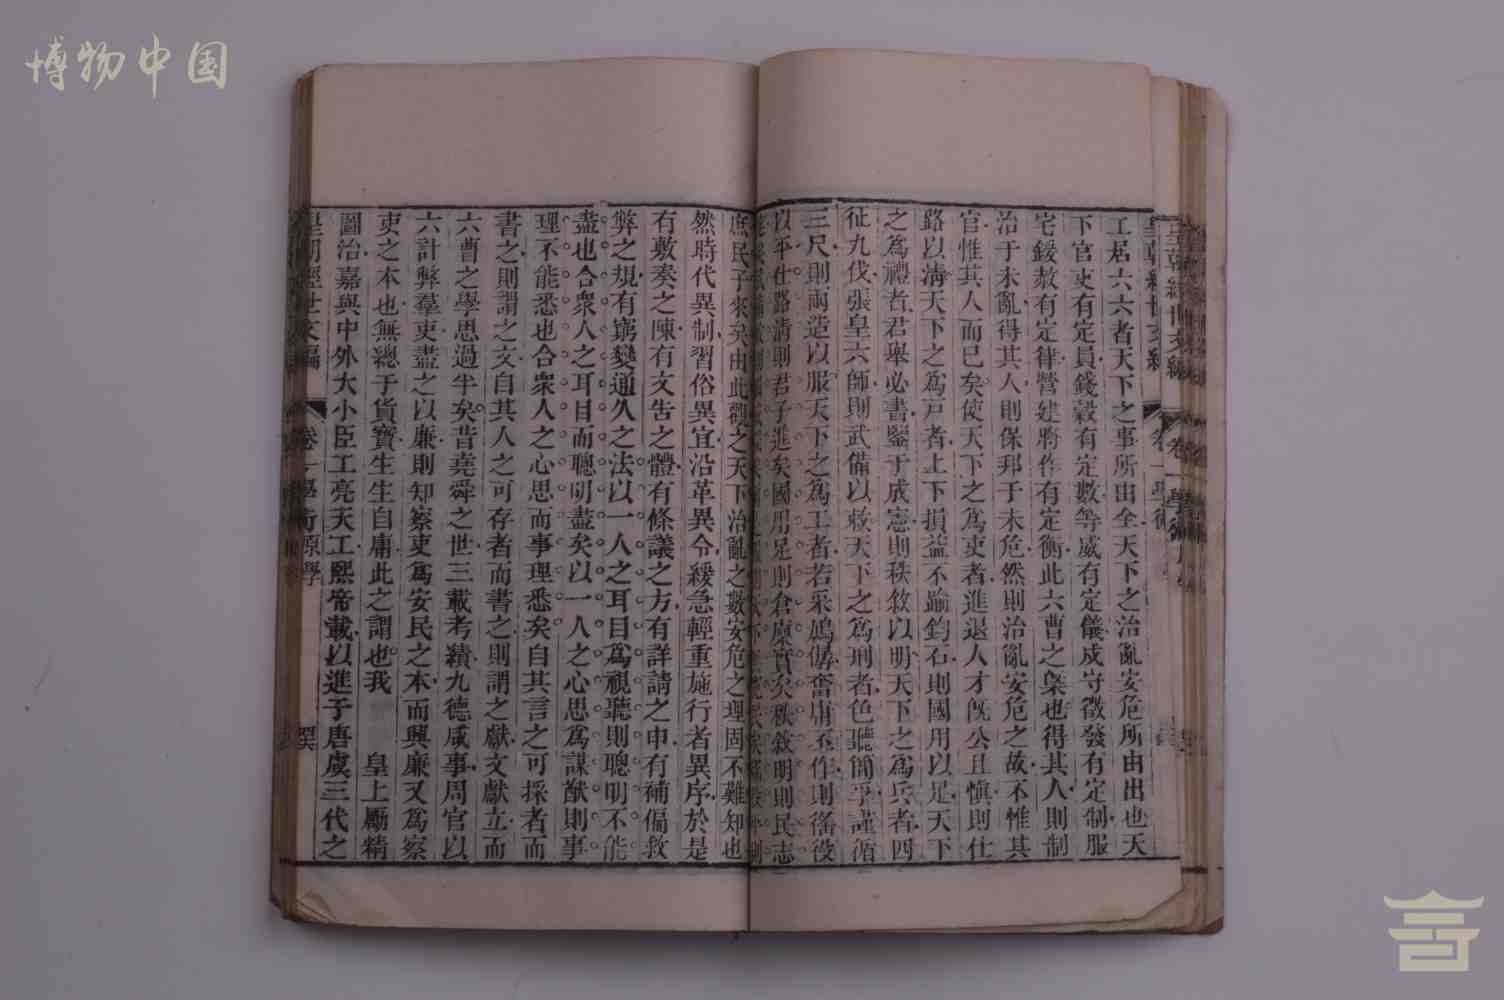 博物中国
工居六六者天下之事所出全天下之治亂安危所由出也天
下官吏有定員錢穀有定數等威有定儀成守徵發有定制服
宅鍰赦有定律營建將作有定衡此六曹之槩也得其人則制
治于未亂得其人則保邦于未危然則治亂安危之故不惟其
官惟其人而已矣使天下之為吏者進退人才旣公且慎則仕
路以清天下之為戸者上下損益不踰鈞石則國用以足天下
之為禮者君舉必書鑒于成憲則秩敘以明天下之為兵者四
征九伐張皇六師則武備以救天下之為刑者色聽簡孚謹循
三尺則兩造以服天下之為工者若采鳩僝奮庸丕作則徭役
以平仕路清則君子進矣國用足則倉廩實矣秩敘明則民志
庶民子來矣由此觀之天下治亂之數安危之理固不難知也
然時代異制習俗異宜沿革異令緩急輕重施行者異序於是
有敷奏之陳有文告之體有條議之方有詳請之申有補偏救
弊之規有窮變通久之法以一人之耳目為視聽則聰明不能
盡也合衆人之耳目而聰明盡矣以一人之心思為謀猷則事
理不能悉也合衆人之心思而事理悉矣自其言之可採者而
書之則謂之文自其人之可存者而書之則謂之獻文獻立而
六曹之學思過半矣昔堯舜之世三載考績九德咸事周官以
六計弊羣吏盡之以廉則知察吏為安民之本而興廉又為察
吏之本也無總于貨寶生生自庸此之謂也我 皇上勵精
圖治嘉與中外大小臣工亮天工熙帝載以進于唐虞三代之
皇朝經世文編 卷一學術原學